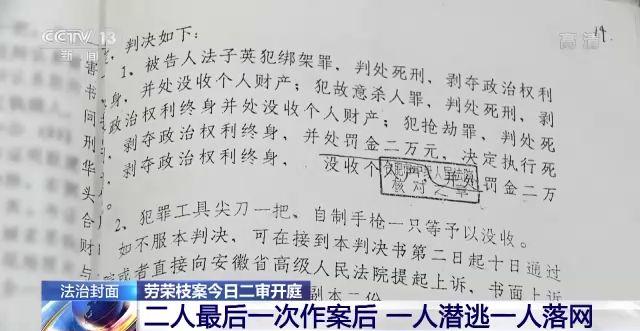 CCTV 13
新闻
高清
19
判决如下:
1、被告人法子英犯绑架罪,判处死刑,剥夺政治权利
身,并处没收个人财产;犯故意杀人罪,判处死刑,剥
政治权利终身并处没收个人财产;犯抢劫罪,判处死
剥夺政治权利终身,并处罚金二万元,决定执行死
剥夺政治权利终身,没收个人财产,并处罚金二万
核对之章
2、犯罪工具尖刀一把、自制手枪一只等予以没收。
如不服本判决,可在接到本判决书第二日起十日通过
院或者直接向安徽省高级人民法院提起上诉,书面上诉
副本二份
害
书
同
刑
华
头
合
财
与
法治封面
劳荣枝案今日二审开庭
二人最后一次作案后 一人潜逃一人落网